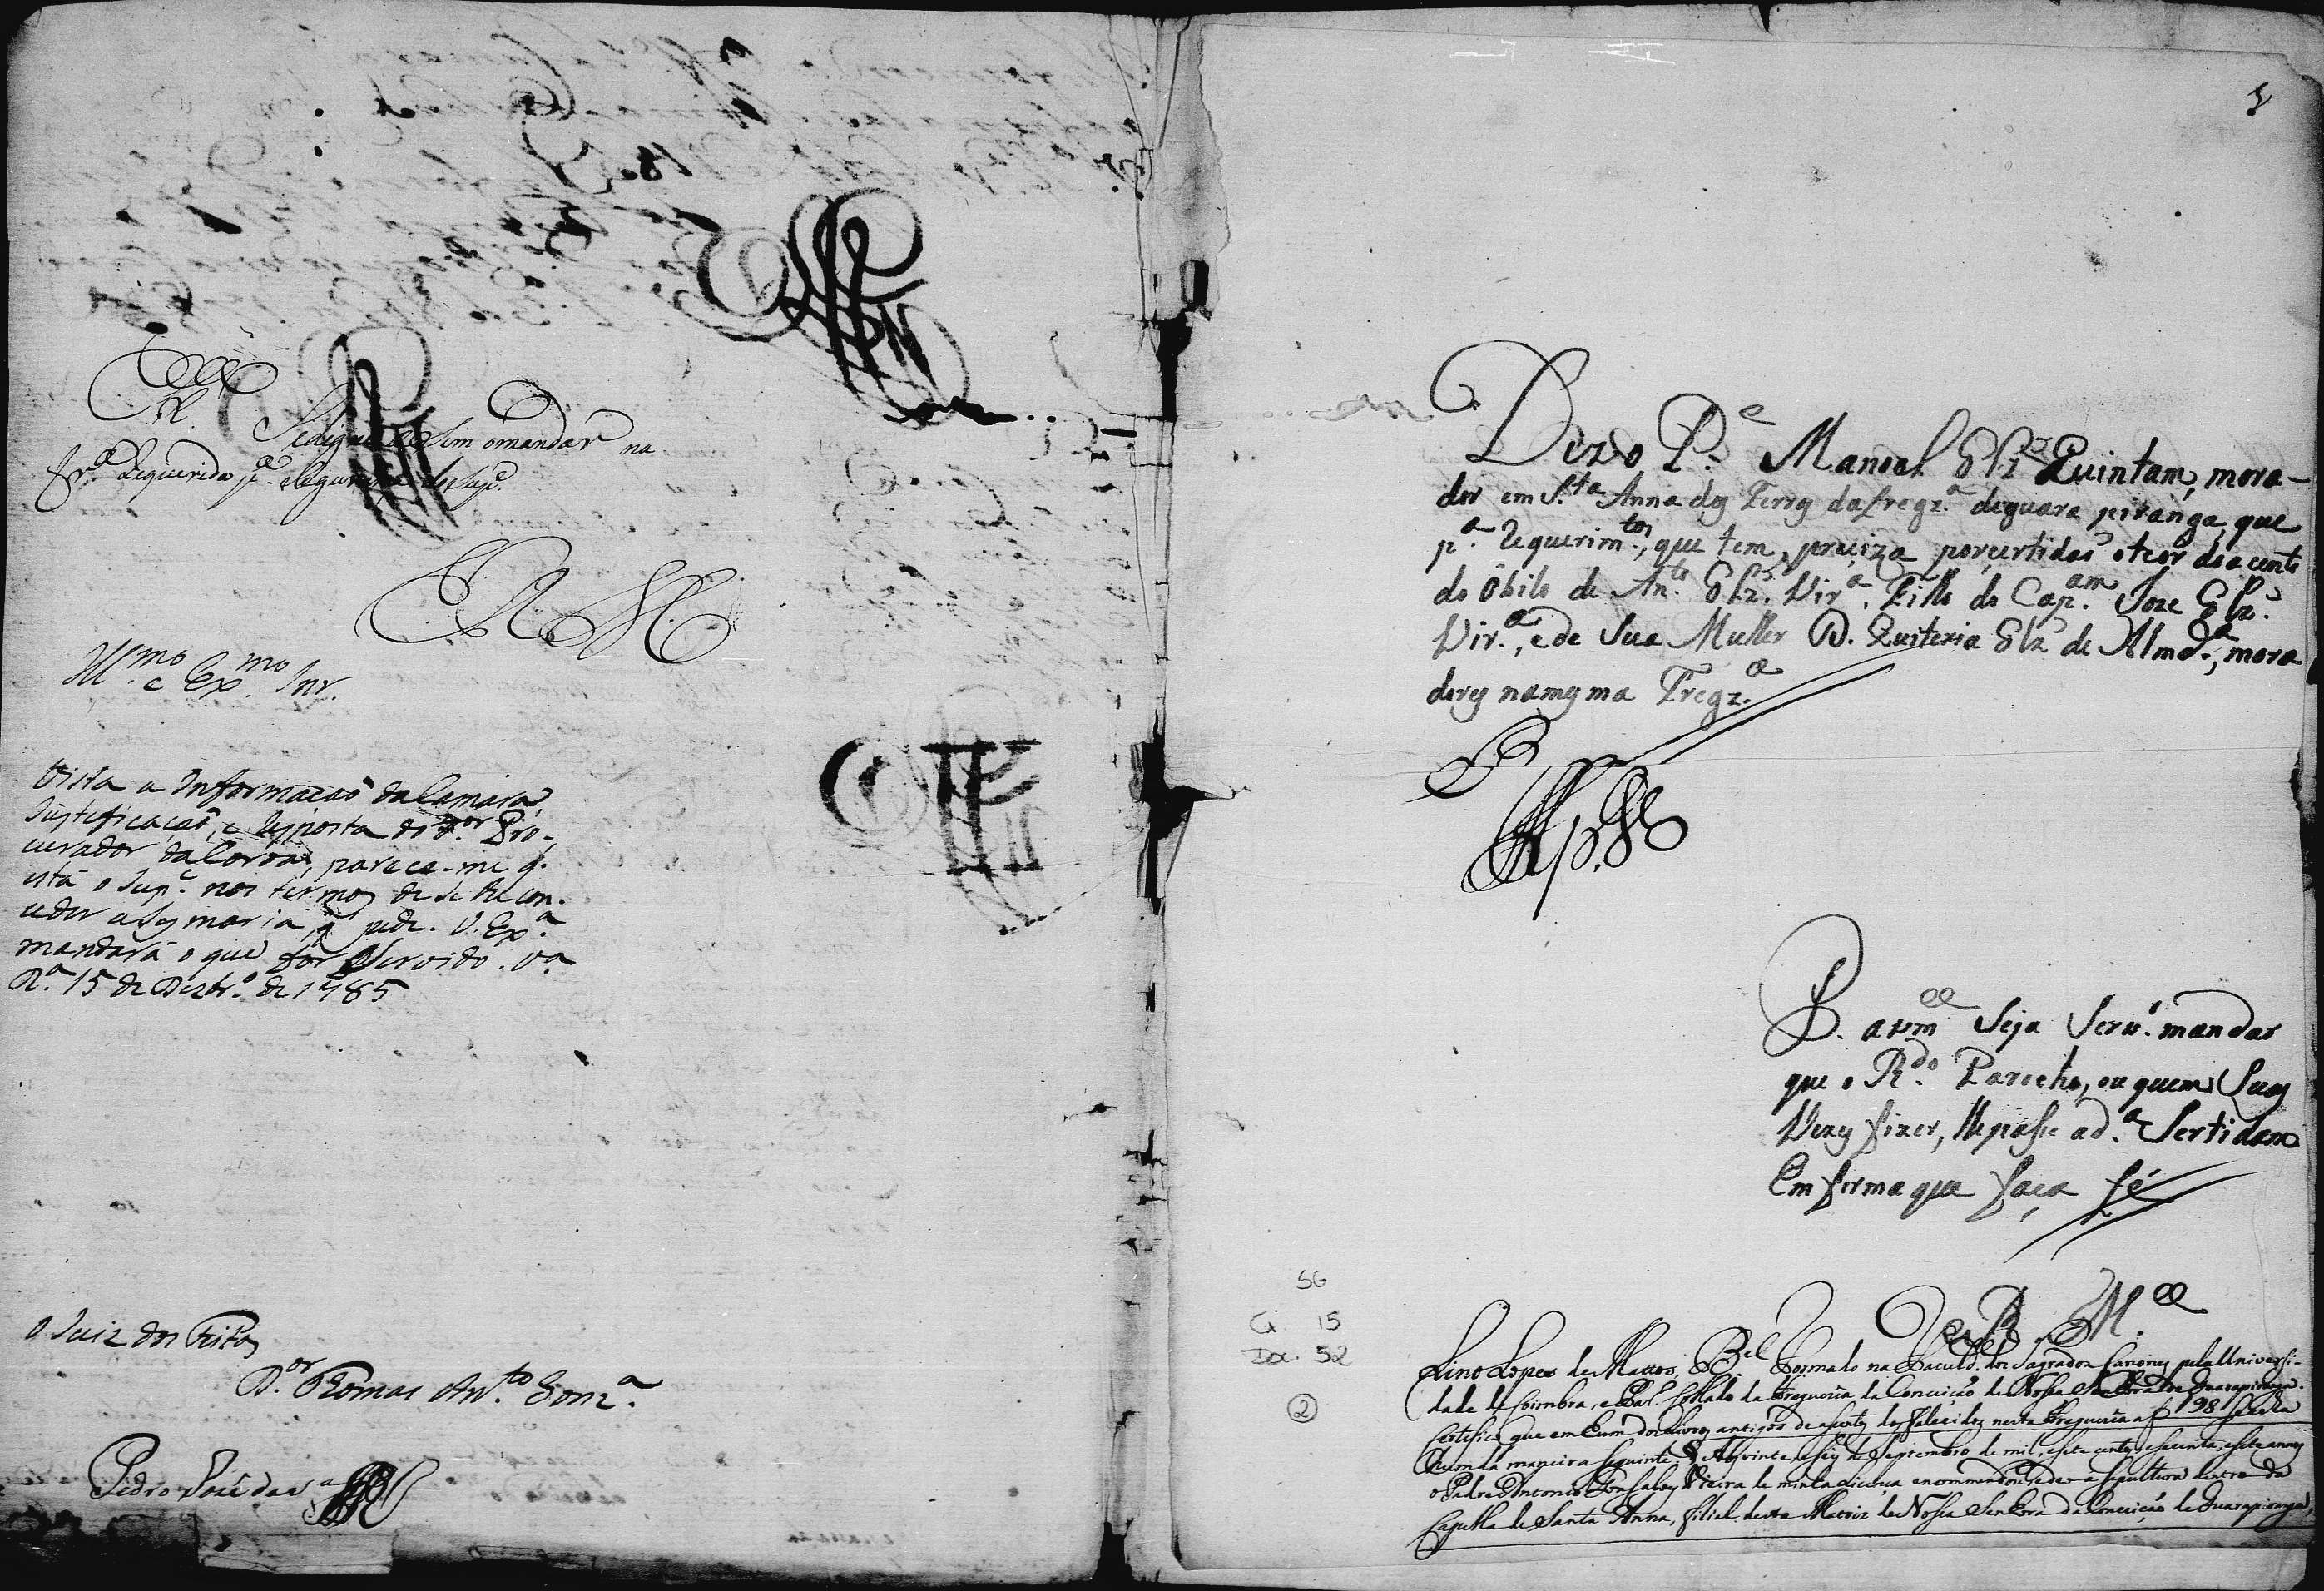 P.
Sedigne assim o mandar na
fr.ª Requerida p.ª segurança do Sup.e
E R M
Ill.mo e Ex.mo Snr.
Vista a Informacaõ da Camara,
Justificacaõ, e Resposta do D.or Pro-
curador da Coroa, parece-me q.
está o Sup.e nos termos de se lhe con-
ceder a Sesmaria, q pede. V. Ex.ª
mandará o que for Servido. V.ª
R.ª 15 de Dezbr.º de 1785
O Juiz dos Feitos
D.or Thomas Ant.to Gonz.ª
Pedro José da
Diz o P.e Manoel Glz Quintam, mora-
dor em S.ta Anna dos Ferros da fregz.ª de guara piranga, que
p.ª Requerim.tos, que tem, preciza por certidaõ o teor do acento
do Óbito de An.to Glz. Vir.ª, Filho do Cap.am Joze Glz.
Vir.ª, e de Sua Mulher D. Quiteria Glz de Almd.ª, mora
dores na mesma Fregz.ª
P. a vm.ce Seja Serv. mandar
que o R.do Parocho, ou quem Suas
Vezes fizer, lhe passe a d.ª Sertidam
Em forma que faça fé
E R M.ce
SG
Cx. 15
Doc. 52
2
Lino Lopes de Mattos, B.el Formado na Faculd. dos Sagrados Canones pela Universi-
dade de Coimbra, e Par.o Collado da Freguezia da Conceição de Nossa Senhora de Guarapiranga.
Certifico que em hum dos Livros antigos de asentos dos falecidos nesta Freguezia a f 198
hum da maneira seguinte: Aos vinte, e seis de Septembro de mil, e sete centos, e secenta, e sete annos
o Padre Antonio Gonsalves Vieira de minha licença encommendou, e deo a sepultura dentro da
Capella de Santa Anna, filial desta Matriz de Nossa Senhora da Conceição de Guarapiranga,